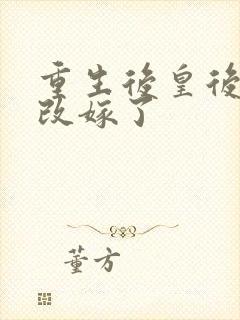 重生後皇後
改嫁了
董方